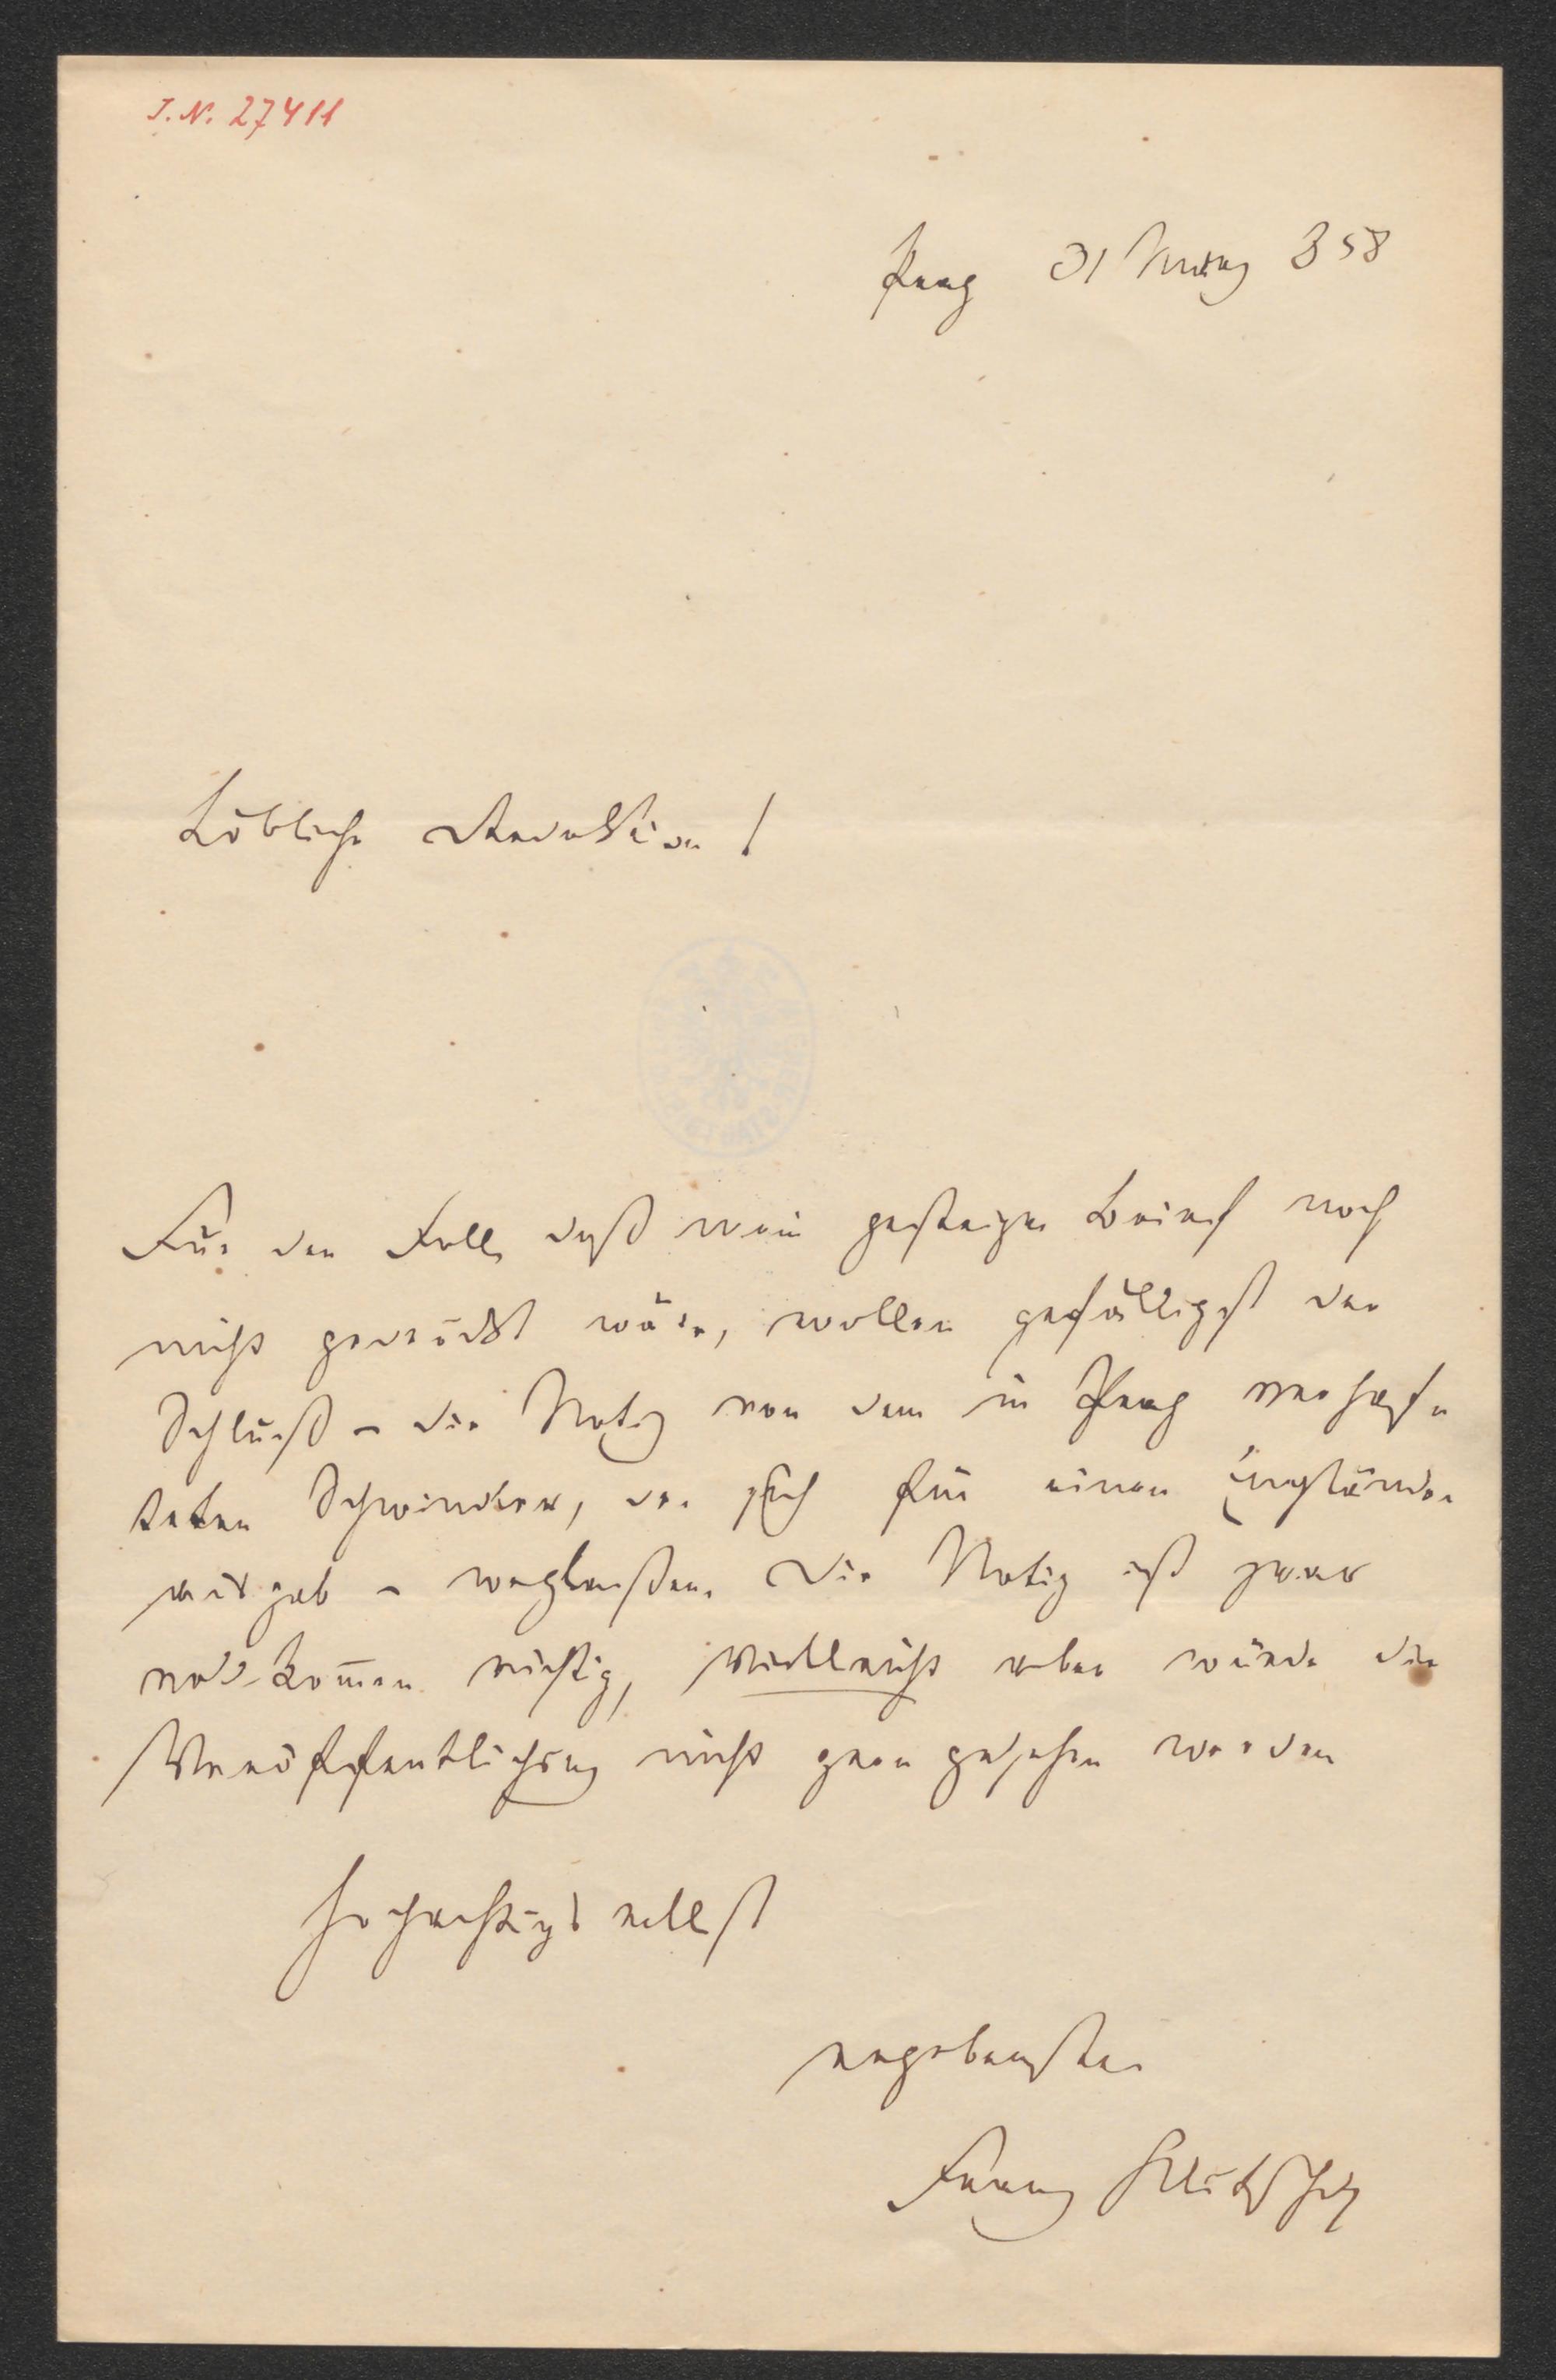 J. N. 27411
Prag 31 März 858
Löbliche Redaktion!
Für den Fall, daß mein gestriger Brief noch
nicht gedruckt wäre, wollen gefälligst den
Schluß – die Notiz von dem in Prag verhaf-
teten Schwindler, der sich für einen Engländer
ausgab – weglassen. Die Notiz ist zwar
vollkom̄en richtig, vielleicht aber würde die
Veröffentlichung nicht gern gesehen werden
Hochachtungsvollst
ergebenster
Franz Klutschak